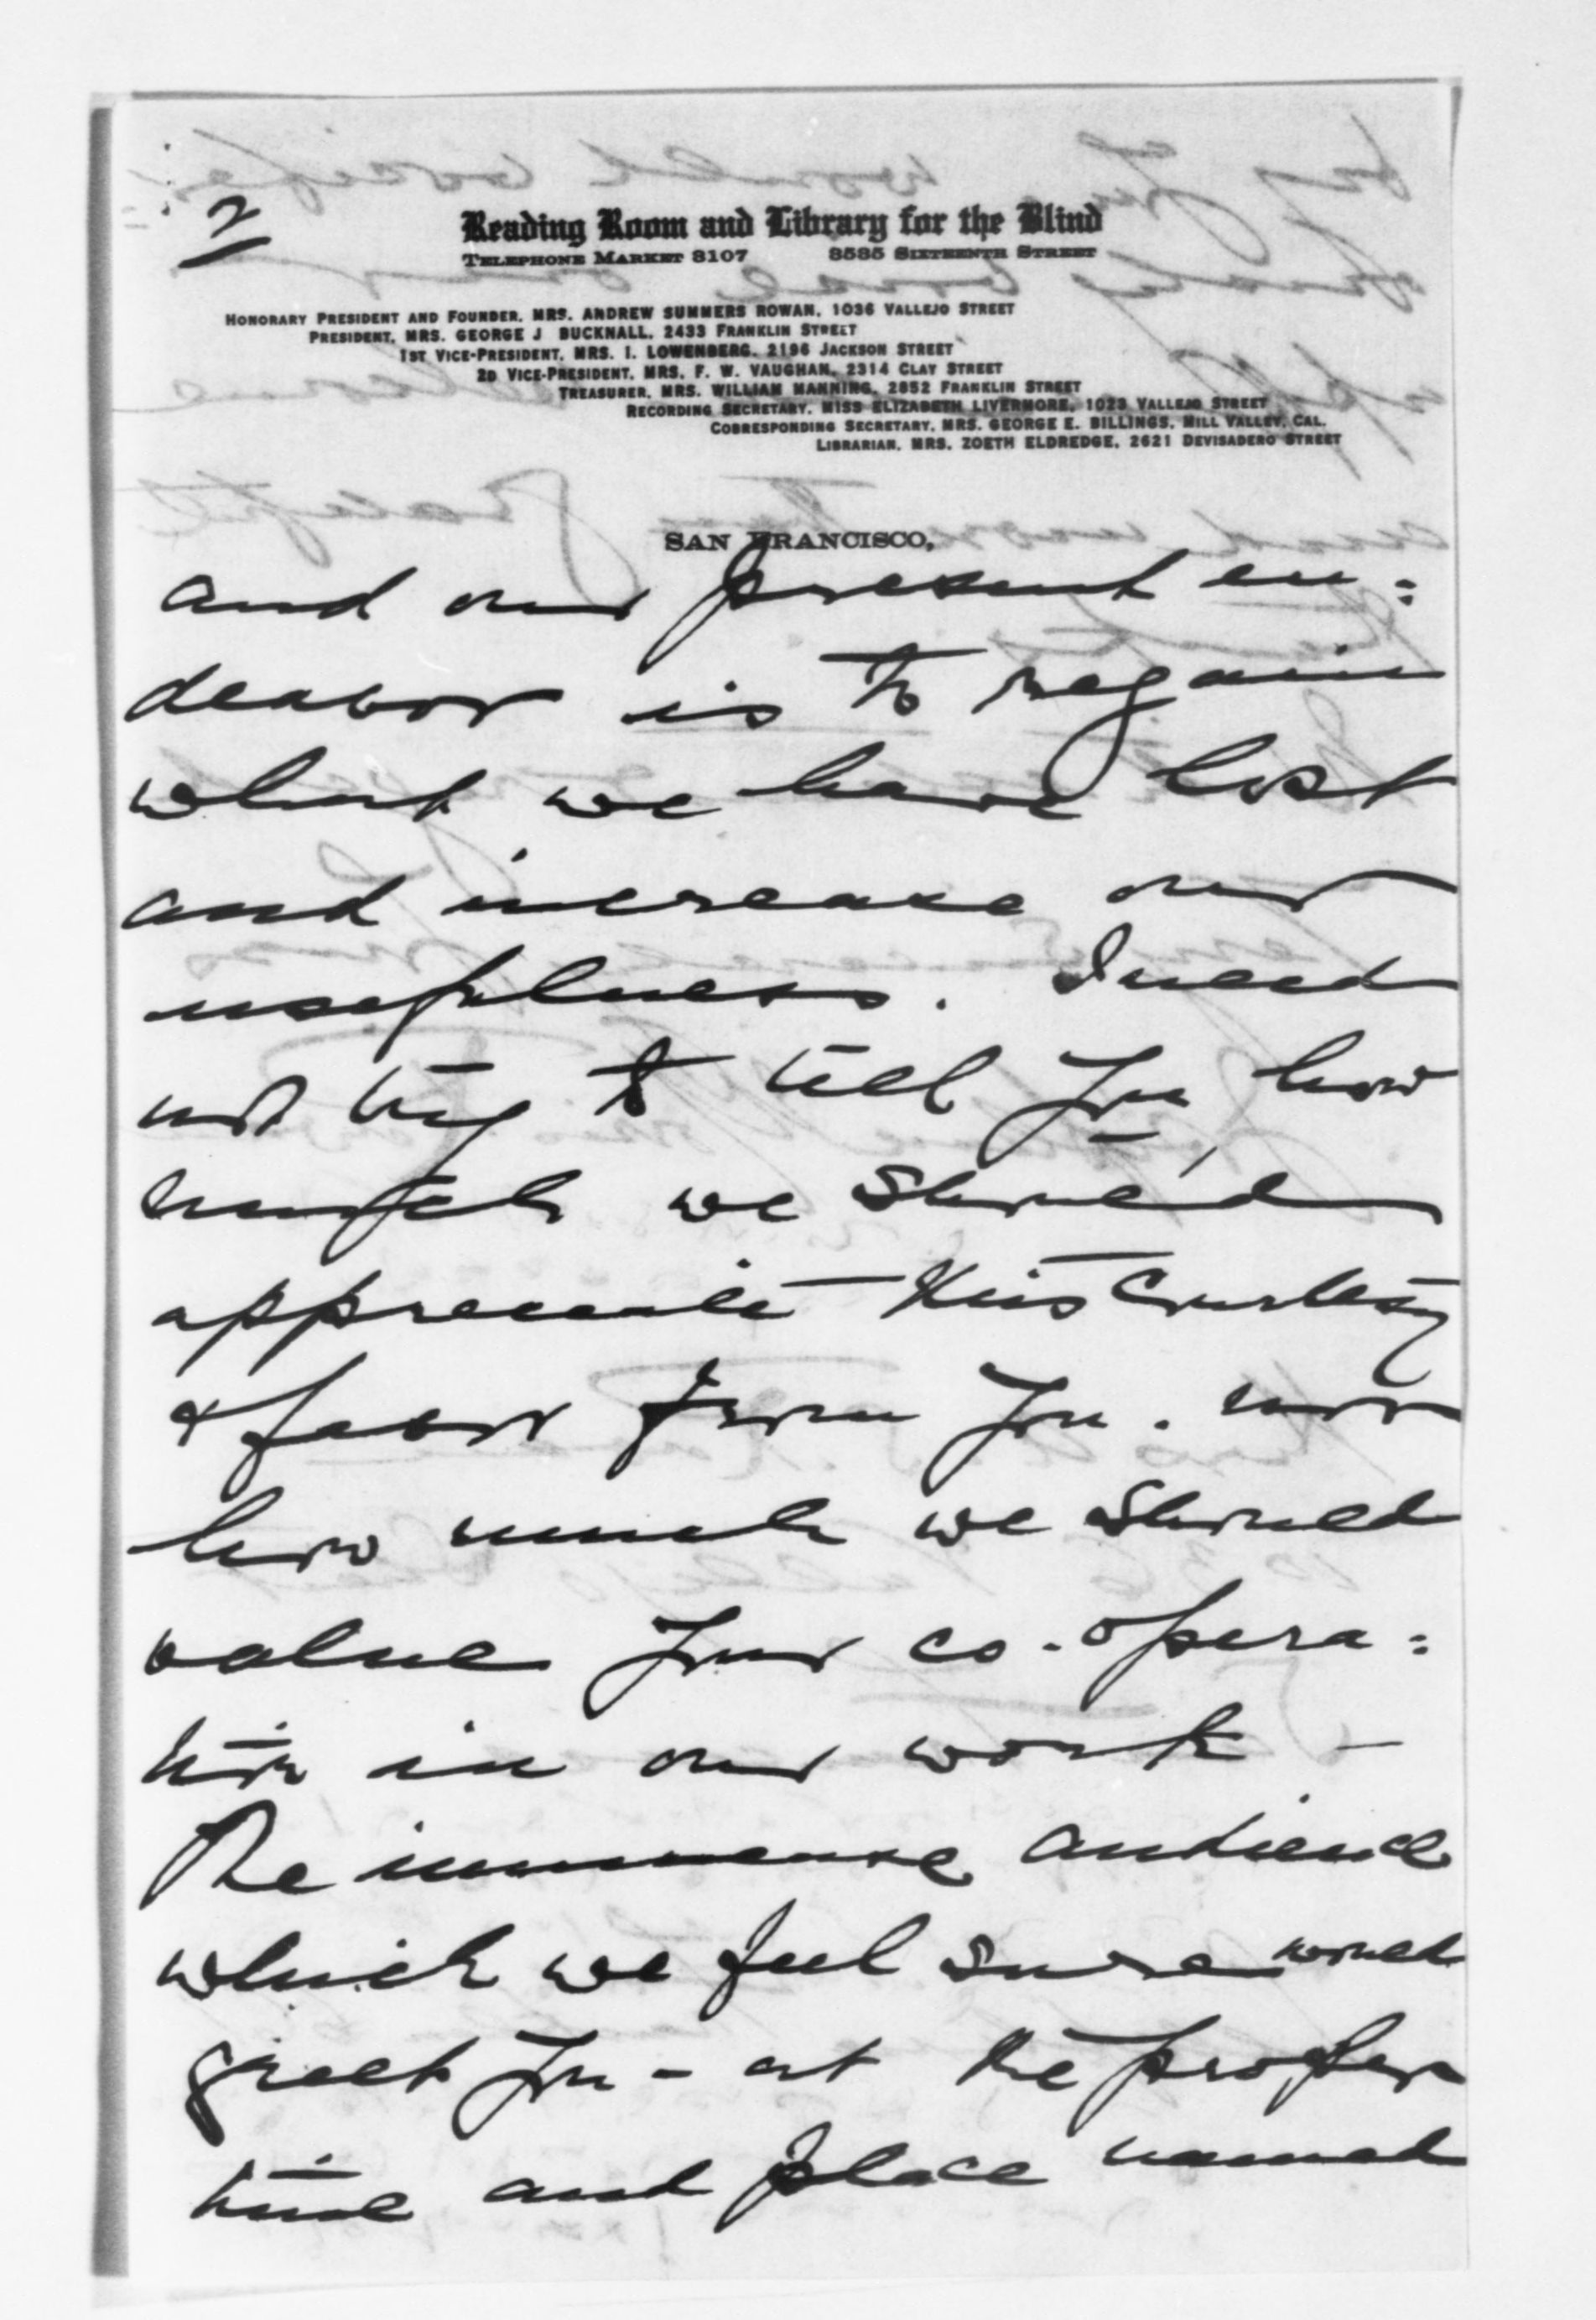 2
Reading Room and Library for the Blind
Telephone Market 3107 3585 Sixteenth Street
Honorary President and Founder, Mrs. Andrew Summers Rowan, 1036 Vallejo Street
President, Mrs. George J Bucknall, 2433 Franklin Street
1st Vice-President, Mrs. I. Lowenberg, 2196 Jackson Street
2d Vice-President, Mrs. F. W. Vaughan, 2314 Clay Street
Treasurer, Mrs. William Manning, 2852 Franklin Street
Recording Secretary, Miss Elizabeth Livermore, 1023 Vallejo Street
Corresponding Secretary, Mrs. George E. Billings, Mill Valley, Cal.
Librarian, Mrs. Zoeth Eldredge, 2621 Devisadero Street
San Francisco,
and our present en:
deavor is to regain
what we have lost
and increase our
usefulness. I need
not try to tell you how
much we should
appreciate this courtesy
& favor from you. nor
how much we should
value your co-opera:
tion in our work -
The immense audience
which we feel sure would
greet you - at the proper
time and place named